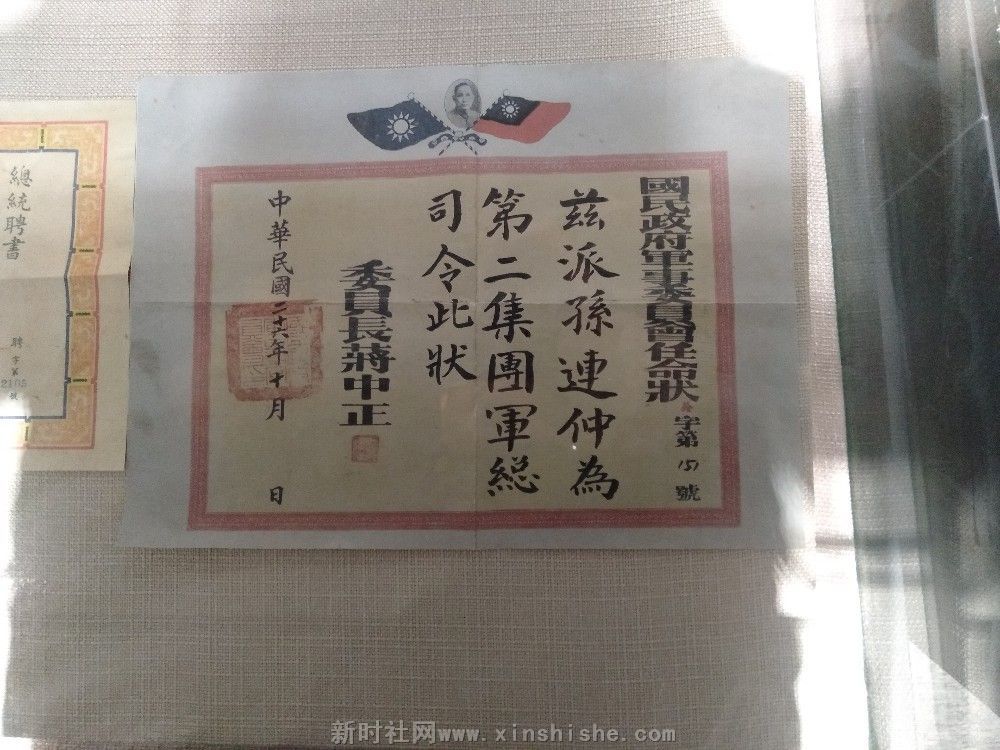 國民政府軍事委員會任命狀
字第151號
茲派孫連仲為
第二集團軍總
司令此狀
委員長蔣中正
中華民國二十六年十月 日
總統聘書
聘字第2105號
新时社网www.xinshishe.com